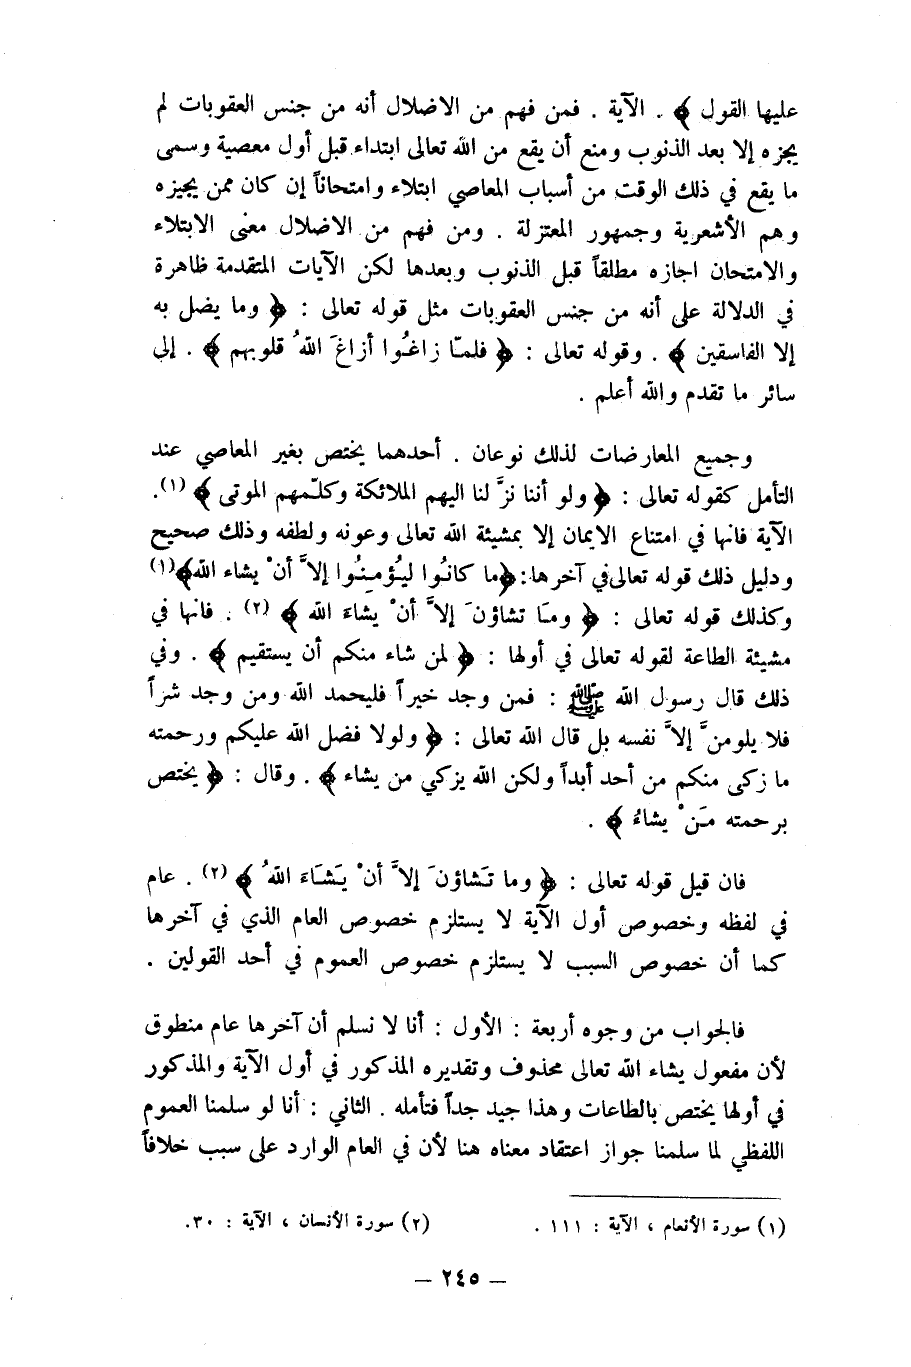 عليها القول ﴾ . الآية . فمن فهم من الاضلال أنه من جنس العقوبات لم
يجزه إلا بعد الذنوب ومنع أن يقع من الله تعالى ابتداء قبل أول معصية وسمى
ما يقع في ذلك الوقت من أسباب المعاصي ابتلاء وامتحاناً إن كان ممن يجيزه
وهم الأشعرية وجمهور المعتزلة . ومن فهم من الاضلال معنى الابتلاء
والامتحان اجازه مطلقاً قبل الذنوب وبعدها لكن الآيات المتقدمة ظاهرة
في الدلالة على أنه من جنس العقوبات مثل قوله تعالى : ﴿ وما يضل به
إلا الفاسقين ﴾ . وقوله تعالى : ﴿ فلمّا زاغُوا أزاغَ اللهُ قلوبهم ﴾ . إلى
سائر ما تقدم والله أعلم .
وجميع المعارضات لذلك نوعان . أحدهما يختص بغير المعاصي عند
التأمل كقوله تعالى : ﴿ ولو أننا نزَّلنا اليهم الملائكة وكلّمهم الموتى ﴾ (١).
الآية فانها في امتناع الايمان إلا بمشيئة الله تعالى وعونه ولطفه وذلك صحيح
ودليل ذلك قوله تعالى في آخرها: ﴿ما كانُوا ليُؤمِنُوا إلاَّ أنْ يشاء الله﴾(١)
وكذلك قوله تعالى : ﴿ ومَا تشاؤنَ إلاَّ أنْ يشاءَ الله ﴾ (٢) . فانها في
مشيئة الطاعة لقوله تعالى في أولها : ﴿ لمن شاء منكم أن يستقيم ﴾ . وفي
ذلك قال رسول الله ﷺ : فمن وجد خيراً فليحمد الله ومن وجد شراً
فلا يلومنَّ إلاَّ نفسه بل قال الله تعالى : ﴿ ولولا فضل الله عليكم ورحمته
ما زكى منكم من أحد أبداً ولكن الله يزكي من يشاء ﴾ . وقال : ﴿ يختص
برحمته مَنْ يشاءُ ﴾ .
فان قيل قوله تعالى : ﴿ وما تَشاؤنَ إلاَّ أنْ يَشَاءَ اللهُ ﴾ (٢) . عام
في لفظه وخصوص أول الآية لا يستلزم خصوص العام الذي في آخرها
كما أن خصوص السبب لا يستلزم خصوص العموم في أحد القولين .
فالجواب من وجوه أربعة : الأول : أنا لا نسلم أن آخرها عام منطوق
لأن مفعول يشاء الله تعالى محذوف وتقديره المذكور في أول الآية والمذكور
في أولها يختص بالطاعات وهذا جيد جداً فتأمله . الثاني : أنا لو سلمنا العموم
اللفظي لما سلمنا جواز اعتقاد معناه هنا لأن في العام الوارد على سبب خلافاً
(١) سورة الأنعام ، الآية : ١١١ . (٢) سورة الأنسان ، الآية : ٣٠.
— ٢٤٥ —